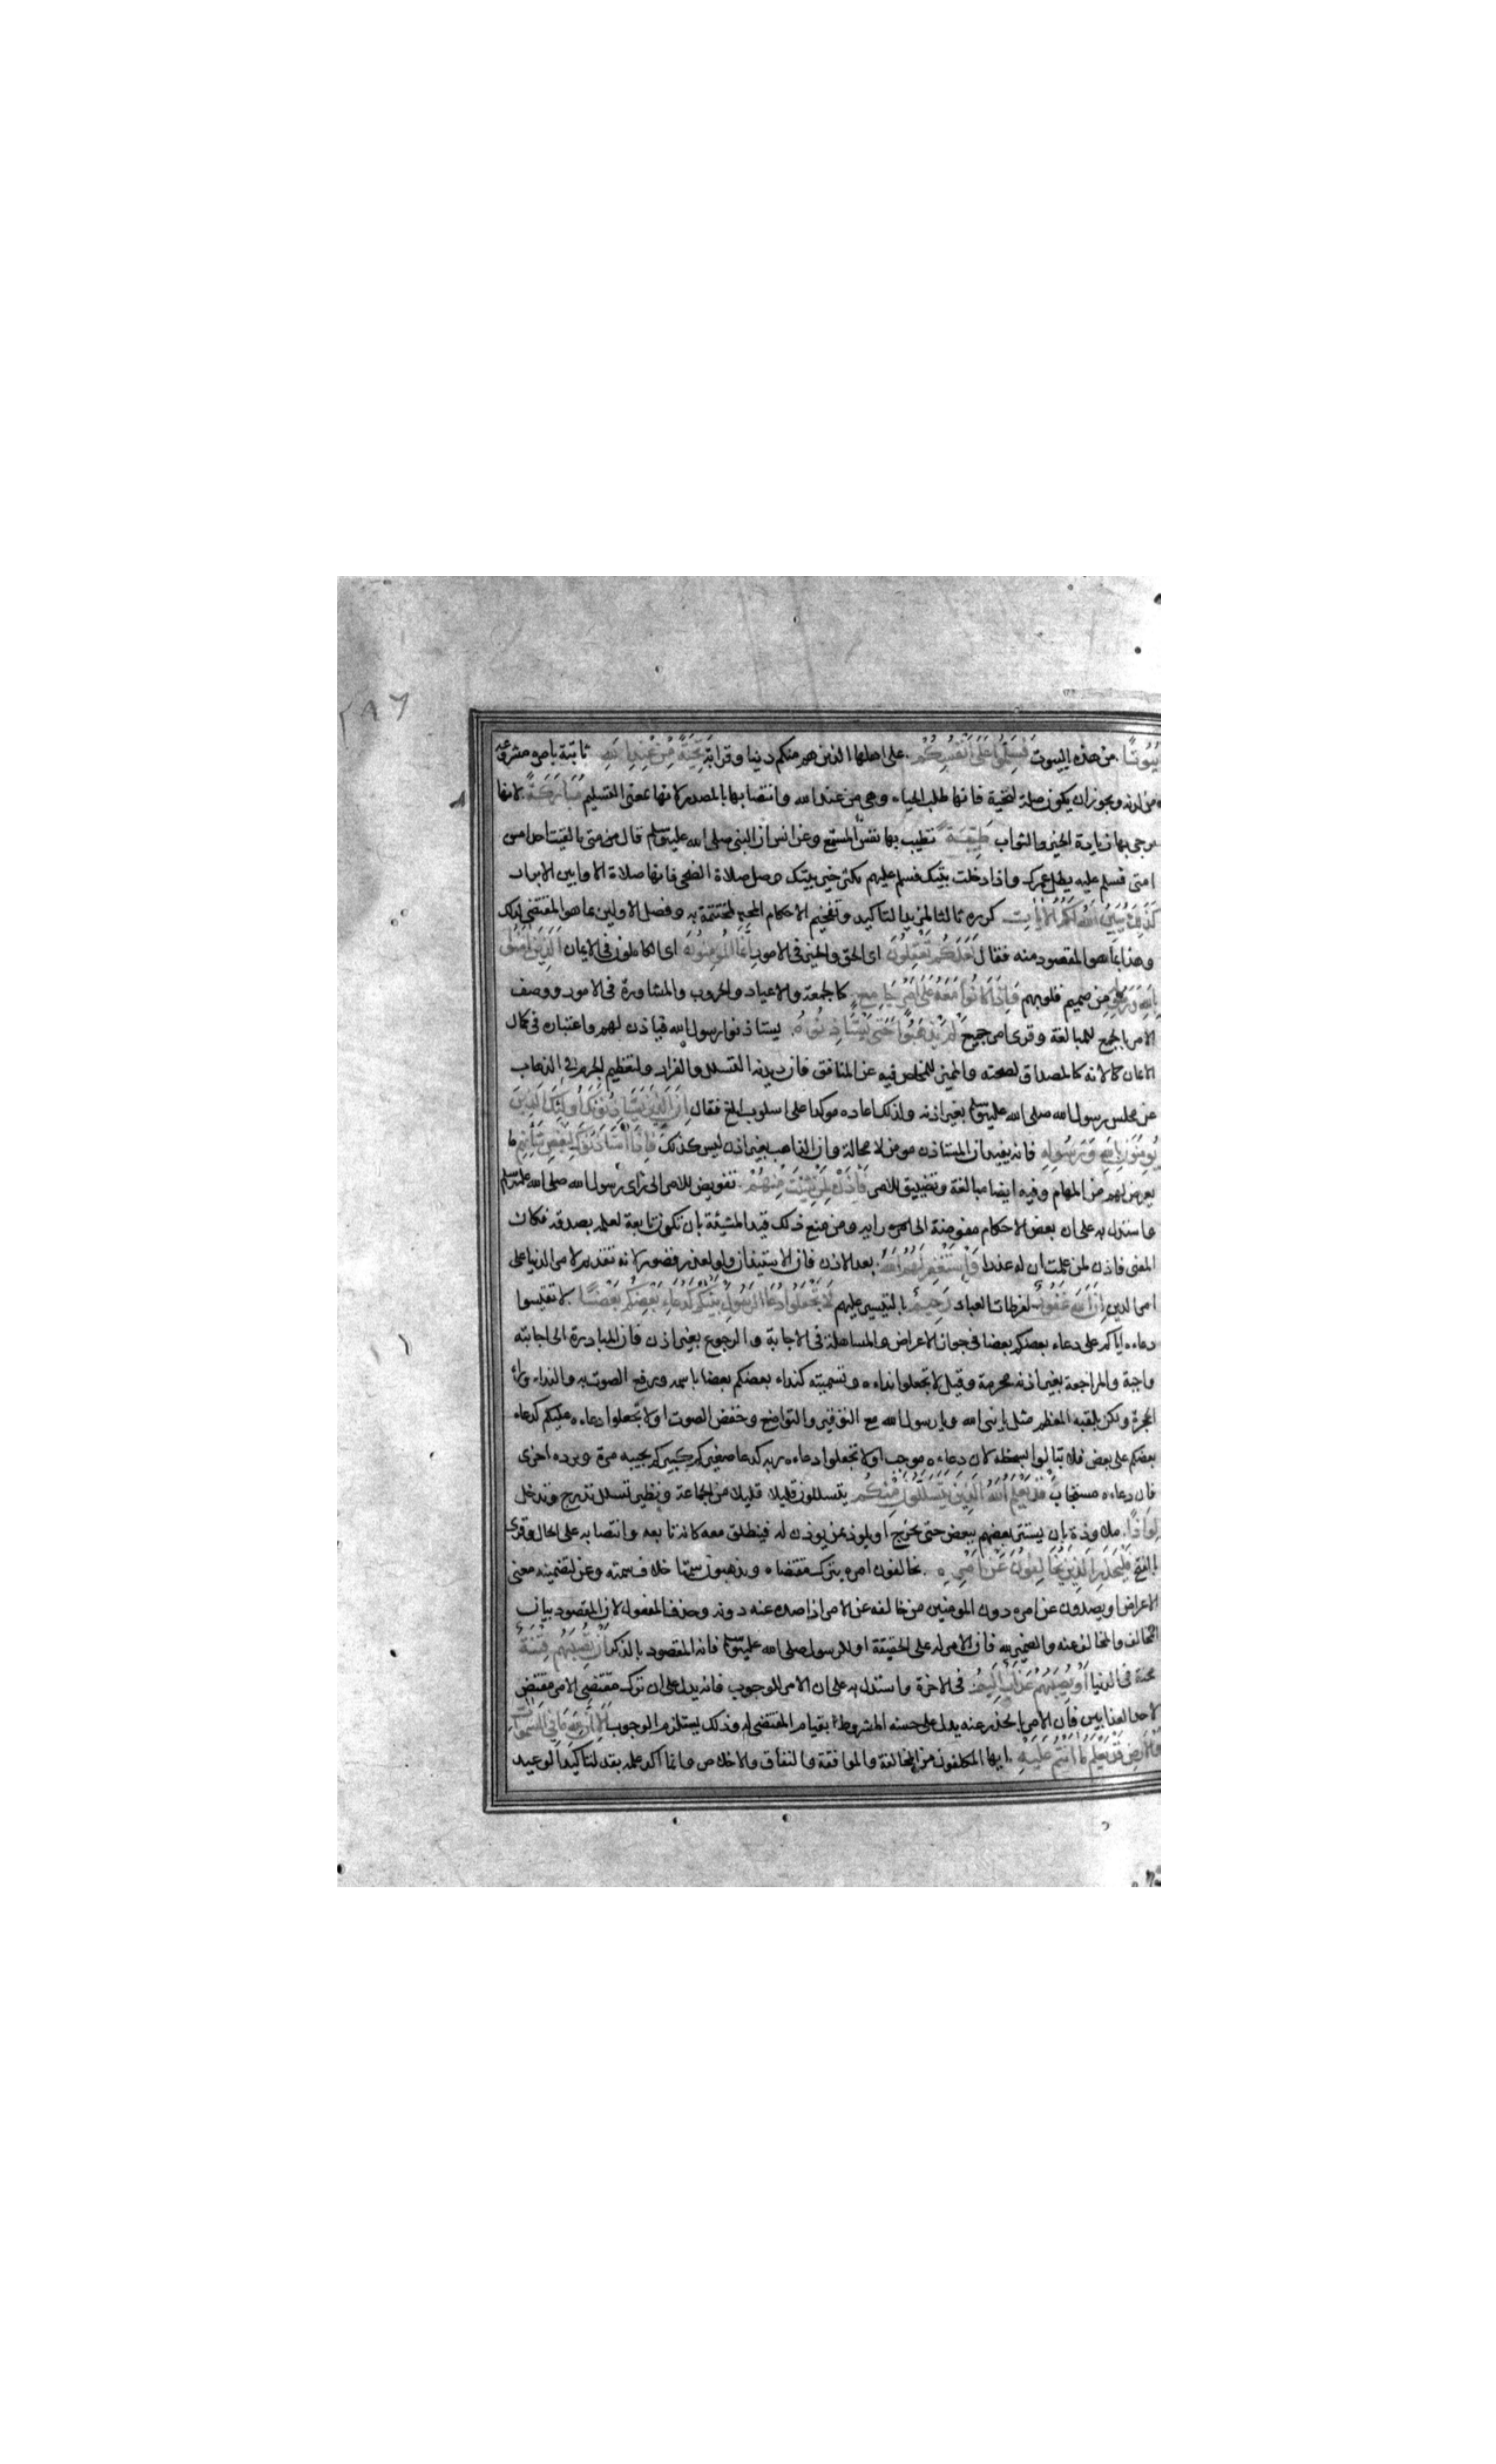 ٢٨٦
بُيُوتًا من هذه البيوت فَسَلِّمُوا عَلَى أَنْفُسِكُمْ على اهلها الذين هم منكم دينا وقرابة تَحِيَّةً مِنْ عِنْدِ اللهِ ثابتة بامره مشروعة
من لدنه ويجوز ان يكون صلة لتحية فانها طلب الحياه وهي من عند الله وانتصابها بالمصدر لانها بمعنى التسليم مُبَارَكَةً لانها
يرجى بها زيادة الخير والثواب طَيِّبَةً تطيب بها نفس المستمع وعن انس ان النبي صلى الله عليه وسلم قال من متى لقيت احدا من
امتى فسلم عليه يطل عمرك واذا دخلت بيتك فسلم عليهم يكثر خير بيتك وصل صلاة الضحى فانها صلاة الاوابين الابرار
كَذَلِكَ يُبَيِّنُ اللهُ لَكُمُ الْآيَاتِ كرره ثالثا لمزيد التاكيد وتفخيم الاحكام المختتمة به وفصل الاولين بما هو المقتضى لذلك
وهذا بما هو المقصود منه فقال لَعَلَّكُمْ تَعْقِلُونَ اى الحق والخير في الامور إِنَّمَا الْمُؤْمِنُونَ اى الكاملون في الايمان الَّذِينَ آمَنُوا
بِاللهِ وَرَسُولِهِ من صميم قلوبهم وَإِذَا كَانُوا مَعَهُ عَلَى أَمْرٍ جَامِعٍ كالجمعة والاعياد والحروب والمشاورة في الامور ووصف
الامر بالجمع للمبالغة وقرى امر جميع لَمْ يَذْهَبُوا حَتَّى يَسْتَأْذِنُوهُ يستاذنوا رسول الله فياذن لهم واعتباره في كمال
الايمان لانه كالمصداق لصحته والمميز للمخلص فيه عن المنافق فان ديدنه التسلل والفرار ولتعظيم الجرم في الذهاب
عن مجلس رسول الله صلى الله عليه وسلم بغير اذنه ولذلك اعاده موكدا على اسلوب ابلغ فقال إِنَّ الَّذِينَ يَسْتَأْذِنُونَكَ أُولَئِكَ الَّذِينَ
يُؤْمِنُونَ بِاللهِ وَرَسُولِهِ فانه يفيد ان المستاذن مومن لا محالة وان الذاهب بغير اذن ليس كذلك فَإِذَا اسْتَأْذَنُوكَ لِبَعْضِ شَأْنِهِمْ ما
يعرض لهم من المهام وفيه ايضا مبالغة وتضييق للامر فَأْذَنْ لِمَنْ شِئْتَ مِنْهُمْ تفويض للامر الى راى رسول الله صلى الله عليه وسلم
واستدل به على ان بعض الاحكام مفوضة الى رايه ومن منع ذلك قيد المشيئة بان تكون تابعة لعلمه بصدقه فكان
المعنى فاذن لمن علمت ان له عذرا وَاسْتَغْفِرْ لَهُمُ اللهَ بعد الاذن فان الاستيذان ولو لعذر قصور لانه تقديم لامر الدنيا على
امر الدين إِنَّ اللهَ غَفُورٌ لفرطات العباد رَحِيمٌ بالتيسير عليهم لَا تَجْعَلُوا دُعَاءَ الرَّسُولِ بَيْنَكُمْ كَدُعَاءِ بَعْضِكُمْ بَعْضًا لا تقيسوا
دعاءه اياكم على دعاء بعضكم بعضا في جواز الاعراض والمساهلة في الاجابة والرجوع بغير اذن فان المبادرة الى اجابته
واجبة والمراجعة بغير اذنه محرمة وقيل لا تجعلوا نداءه وتسميته كنداء بعضكم بعضا باسمه ورفع الصوت به والنداء وراء
الحجرة ولكن بلقبه المعظم مثل يا نبى الله ويا رسول الله مع التوقير والتواضع وخفض الصوت او لا تجعلوا دعاءه عليكم كدعاء
بعضكم على بعض فلا تبالوا بسخطه لان دعاءه موجب او لا تجعلوا دعاءه ربه كدعا صغيركم كبيركم يجيبه مرة ويرده اخرى
فان دعاءه مستجاب قَدْ يَعْلَمُ اللهُ الَّذِينَ يَتَسَلَّلُونَ مِنْكُمْ يتسللون قليلا قليلا من الجماعة ونظير تسلل تدرج وتدخل
لِوَاذًا ملاوذة بان يستتر بعضهم ببعض حتى يخرج او يلوذ بمن يوذن له فينطلق معه كانه تابعه وانتصابه على الحال وقرى
بالفتح فَلْيَحْذَرِ الَّذِينَ يُخَالِفُونَ عَنْ أَمْرِهِ يخالفون امره بترك مقتضاه ويذهبون سمتا خلاف سمته وعن لتضمينه معنى
الاعراض او يصدون عن امره دون المومنين من خالفه عن الامر اذا صده عنه دونه وحذف المفعول لان المقصود بيان
المخالف والمخالف عنه والضمير لله فان الامر له على الحقيقة او للرسول صلى الله عليه وسلم فانه المقصود بالذكر أَنْ تُصِيبَهُمْ فِتْنَةٌ
محنة في الدنيا أَوْ يُصِيبَهُمْ عَذَابٌ أَلِيمٌ في الاخرة واستدل به على ان الامر للوجوب فانه يدل على ان ترك مقتضى الامر مقتض
لاحد العذابين فان الامر بالحذر عنه يدل على حسنه المشروط بقيام المقتضى له وذلك يستلزم الوجوب أَلَا إِنَّ لِلهِ مَا فِي السَّمَوَاتِ
وَالْأَرْضِ قَدْ يَعْلَمُ مَا أَنْتُمْ عَلَيْهِ ايها المكلفون من المخالفة والموافقة والنفاق والاخلاص وانما اكد علمه بقد لتاكيد الوعيد